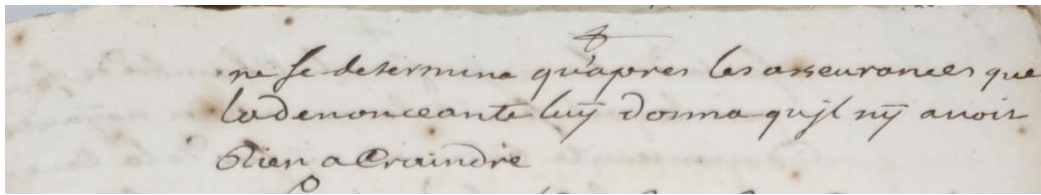 ne se determina qu'apres les asseurances que
la denonceante luÿ donna qu'jl nÿ avoit
Rien a Craindre